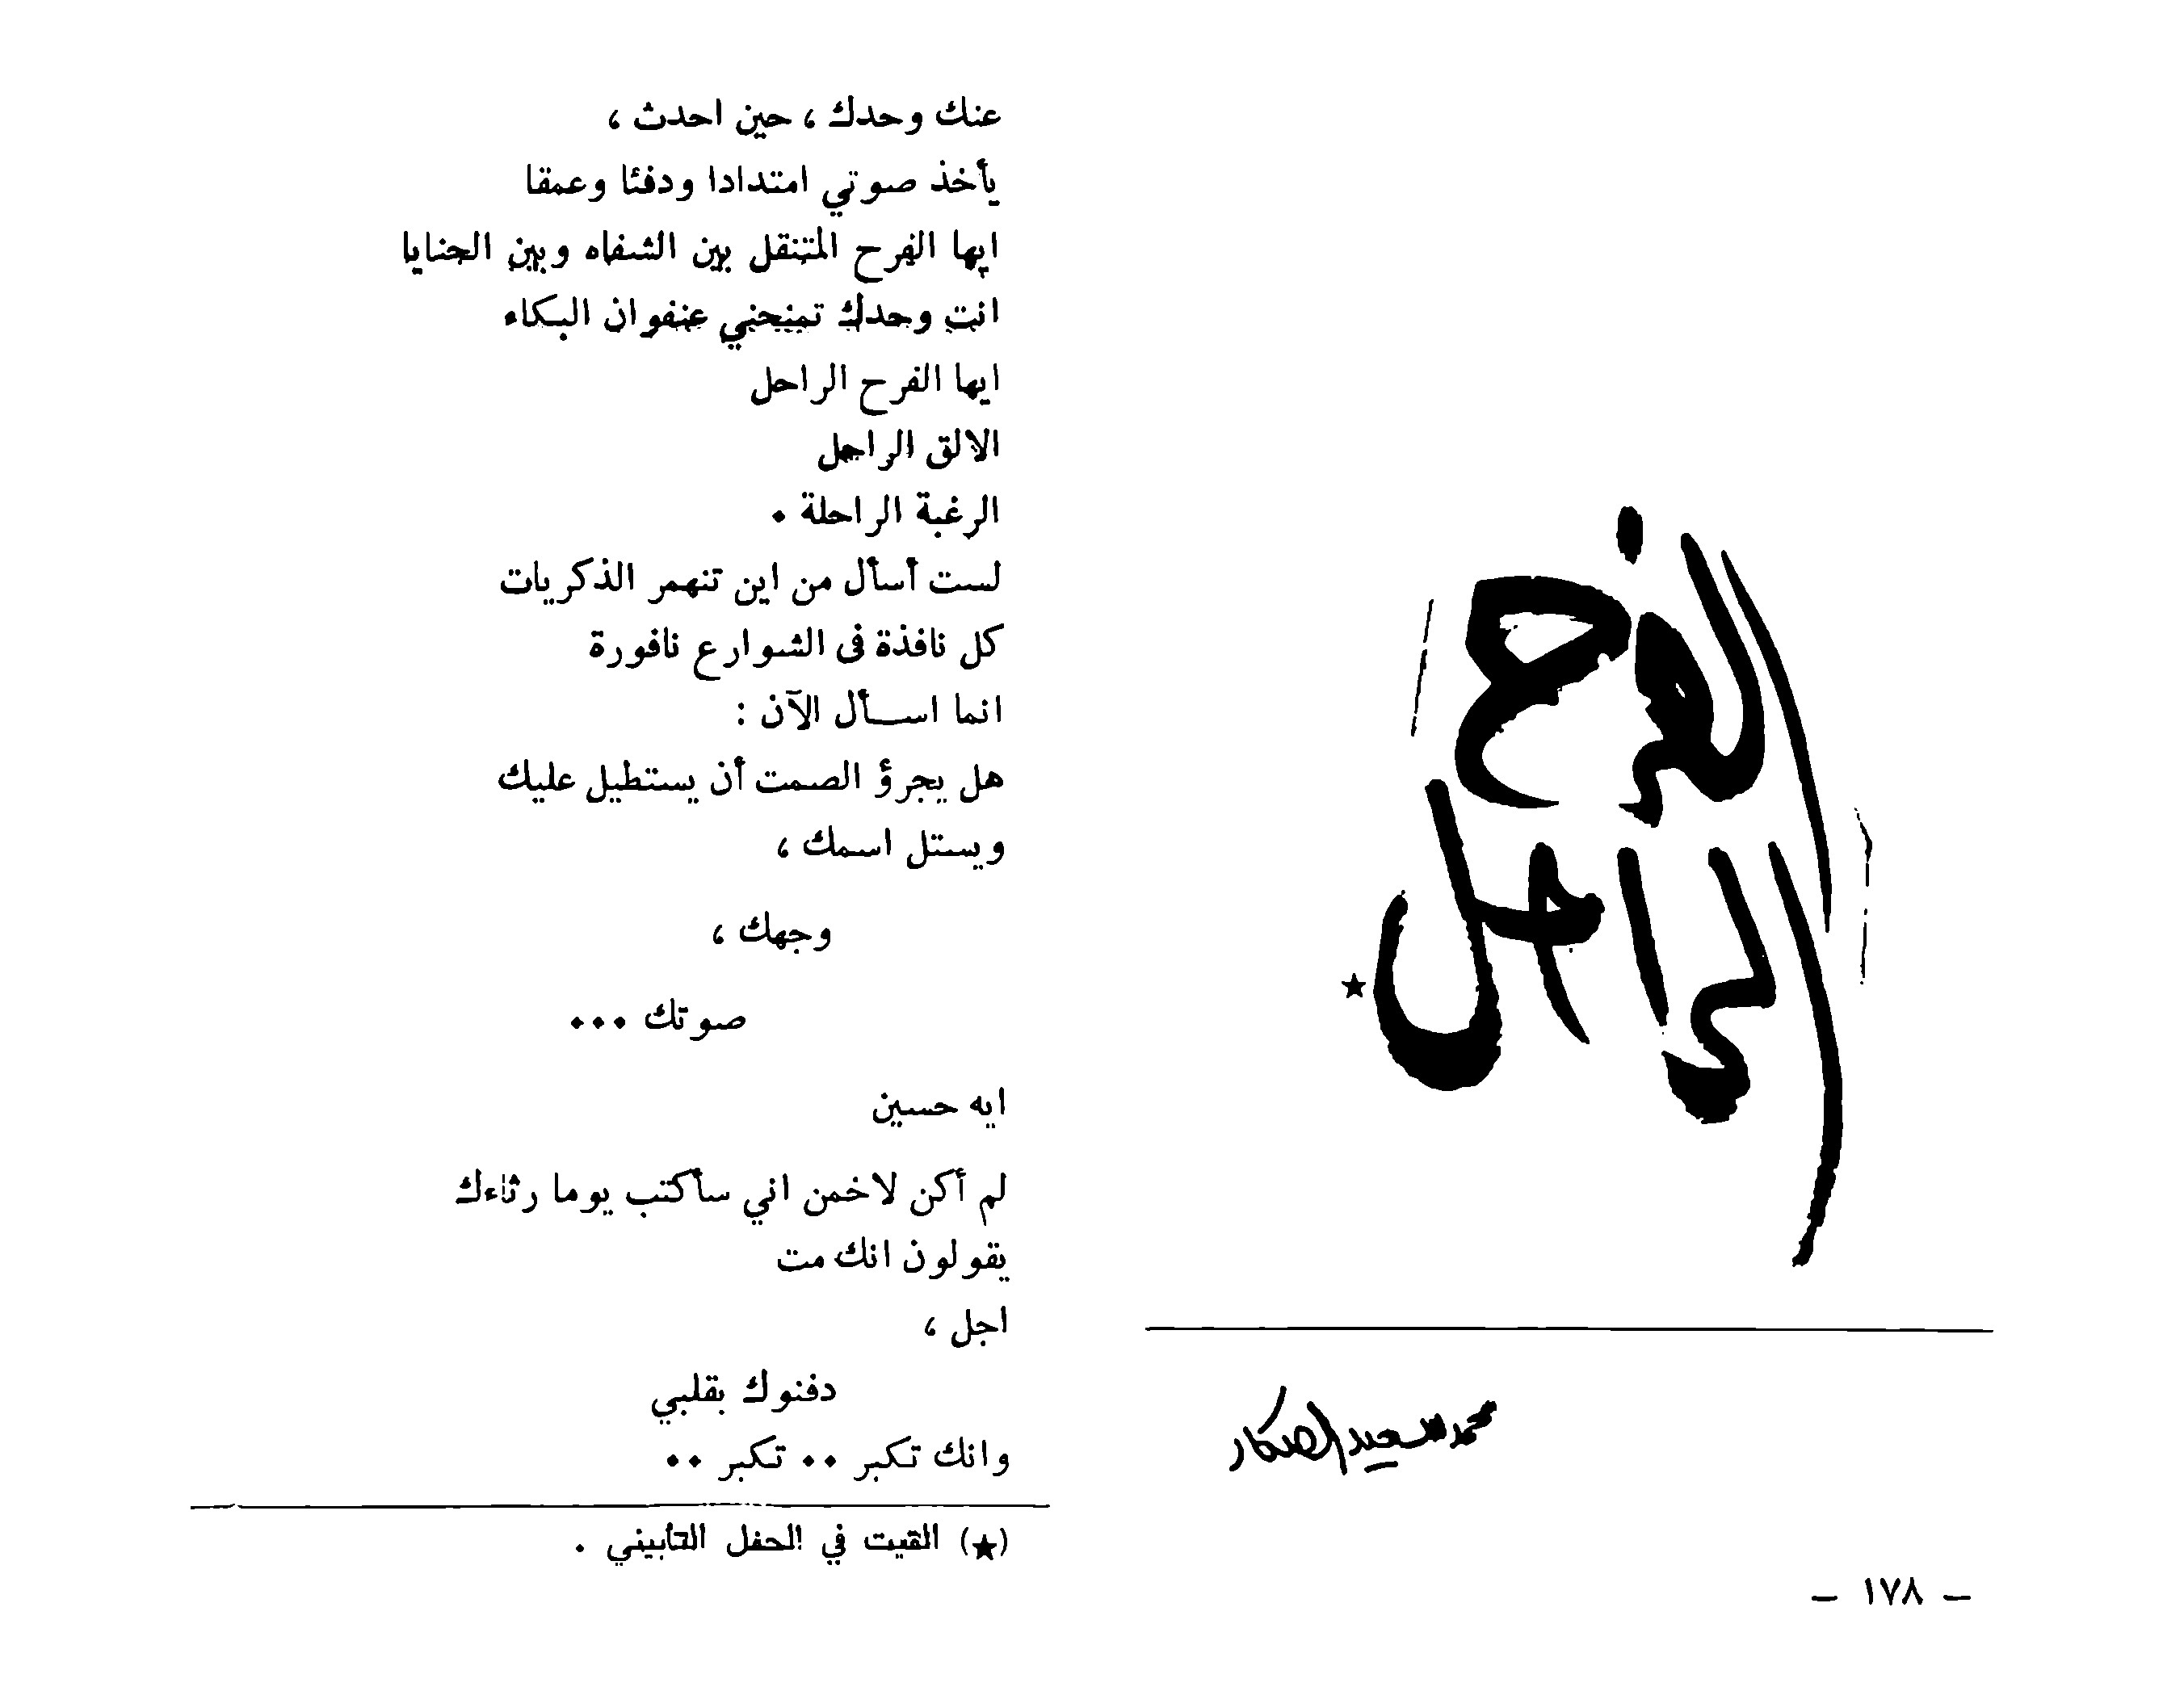 الفرح
الراحل
★
محمد سعيد الصكار
عنك وحدك ، حين احدث ،
يأخذ صوتي امتدادا ودفئا وعمقا
ايها الفرح المتنقل بين الشفاه وبين الحنايا
انت وحدك تمنحني عنفوان البكاء
ايها الفرح الراحل
الالق الراحل
الرغبة الراحلة .
لست أسأل من اين تنهمر الذكريات
كل نافذة في الشوارع نافورة
انما اسأل الآن :
هل يجرؤ الصمت أن يستطيل عليك
ويستل اسمك ،
وجهك ،
صوتك ...
ايه حسين
لم أكن لاخمن اني سأكتب يوما رثاءك
يقولون انك مت
اجل ،
دفنوك بقلبي
وانك تكبر .. تكبر ..
(★) القيت في الحفل التأبيني .
– ١٧٨ –